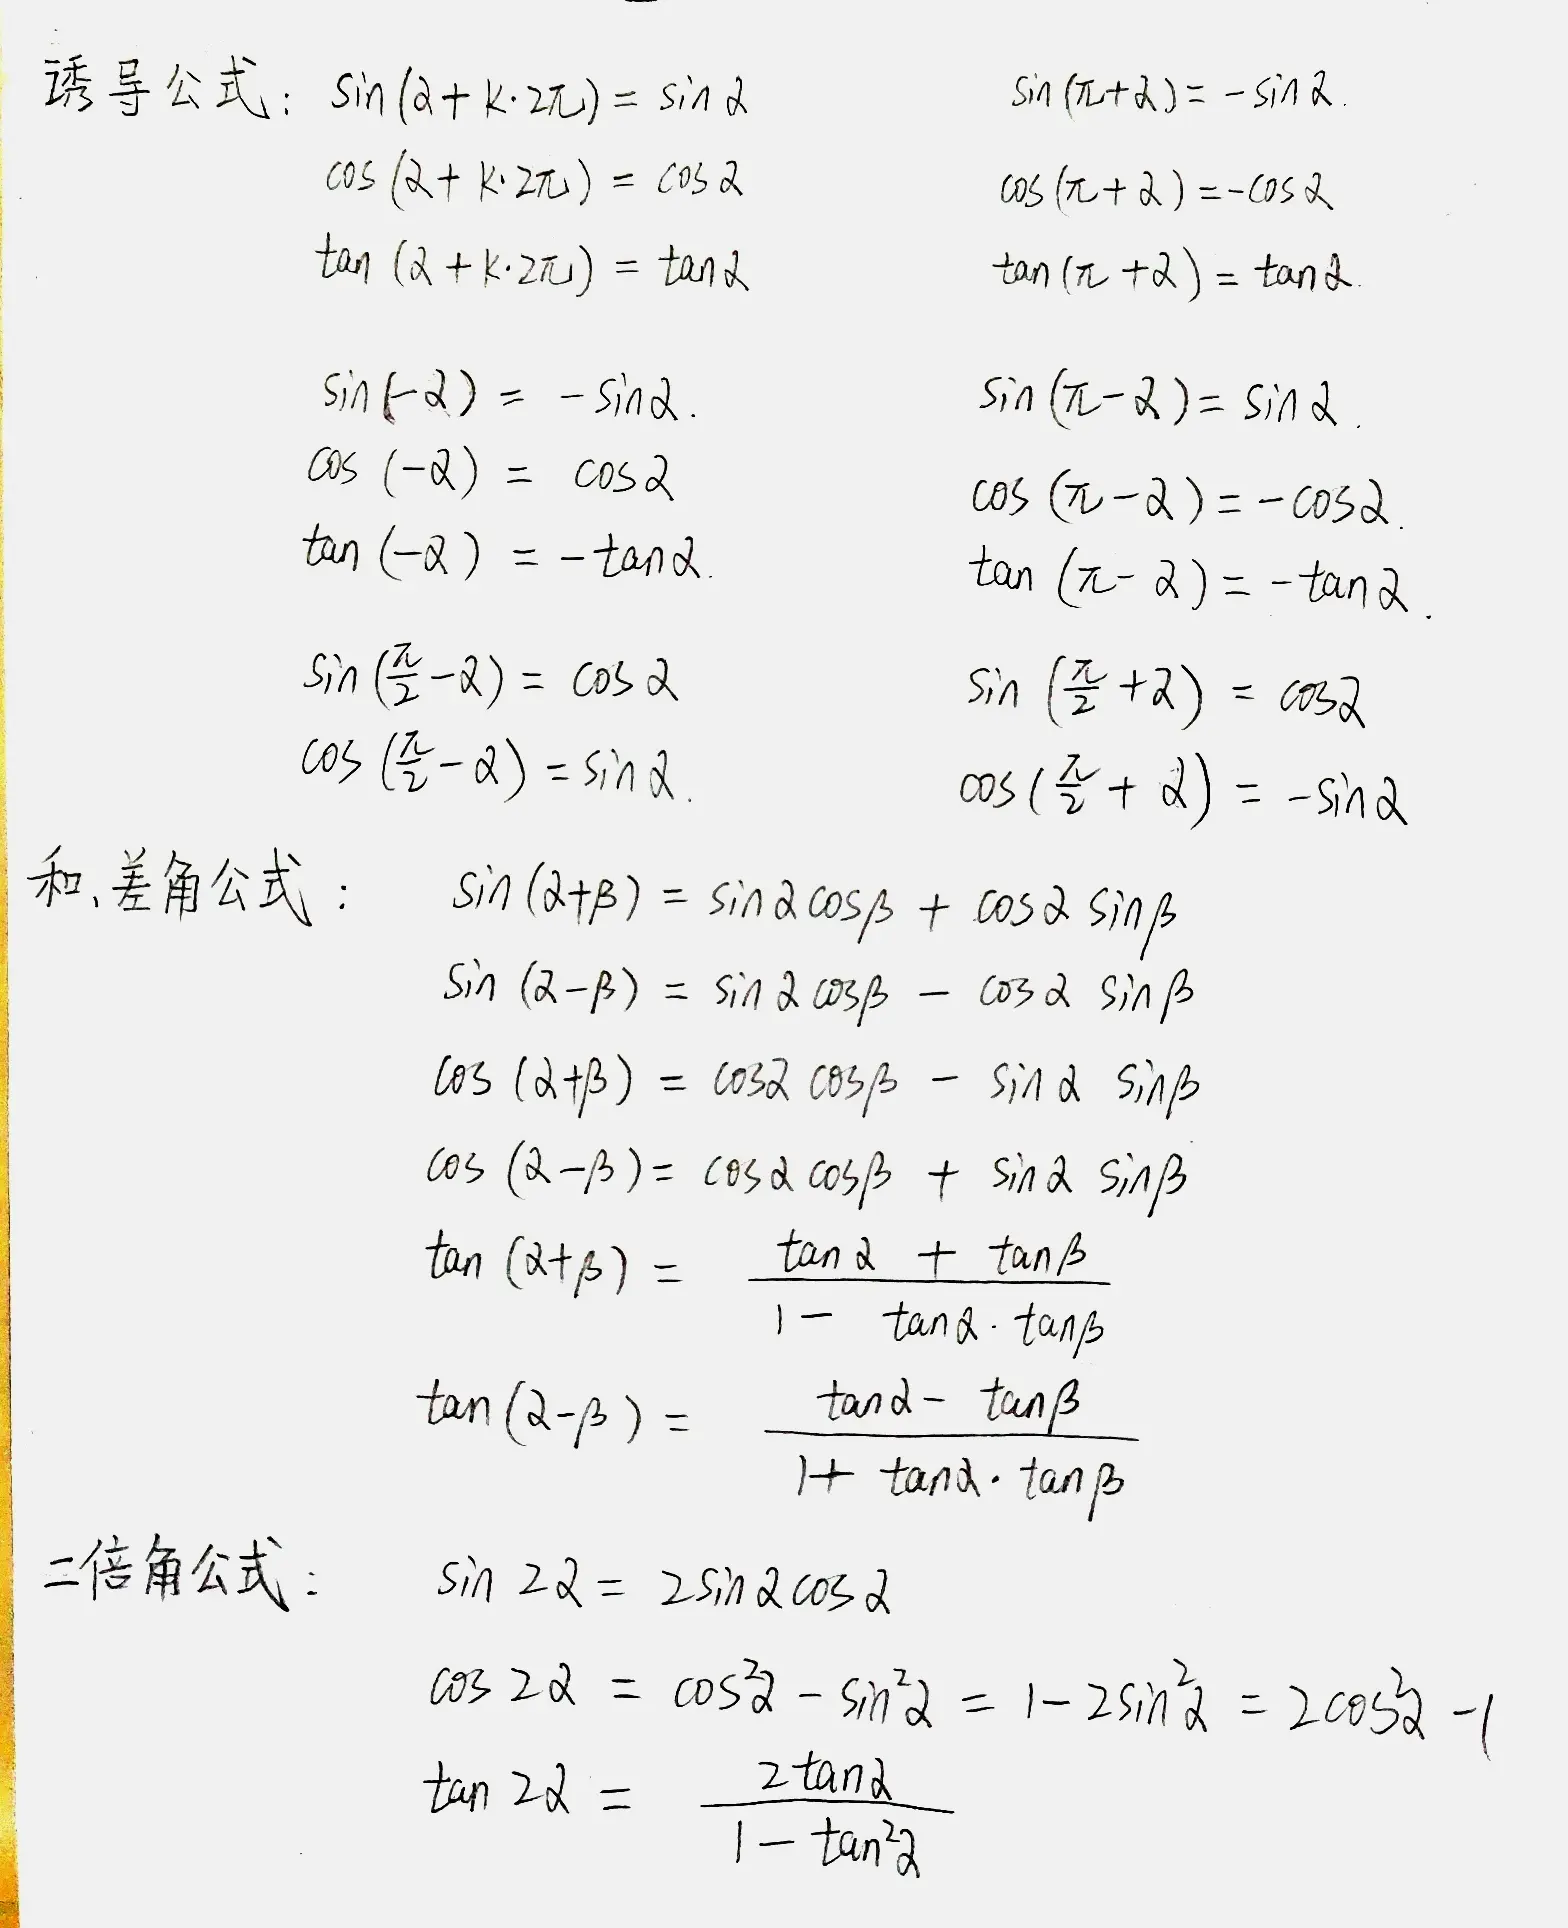 诱导公式: sin(α+k·2π)=sinα sin(π+α)=-sinα.
cos(α+k·2π)=cosα cos(π+α)=-cosα
tan(α+k·2π)=tanα tan(π+α)=tanα.
sin(-α)=-sinα. sin(π-α)=sinα.
cos(-α)=cosα cos(π-α)=-cosα.
tan(-α)=-tanα. tan(π-α)=-tanα.
sin(π/2-α)=cosα sin(π/2+α)=cosα
cos(π/2-α)=sinα. cos(π/2+α)=-sinα
和、差角公式: sin(α+β)=sinαcosβ+cosαsinβ
sin(α-β)=sinαcosβ-cosαsinβ
cos(α+β)=cosαcosβ-sinαsinβ
cos(α-β)=cosαcosβ+sinαsinβ
tan(α+β)=(tanα+tanβ)/(1-tanα·tanβ)
tan(α-β)=(tanα-tanβ)/(1+tanα·tanβ)
二倍角公式: sin2α=2sinαcosα
cos2α=cos²α-sin²α=1-2sin²α=2cos²α-1
tan2α=2tanα/(1-tan²α)